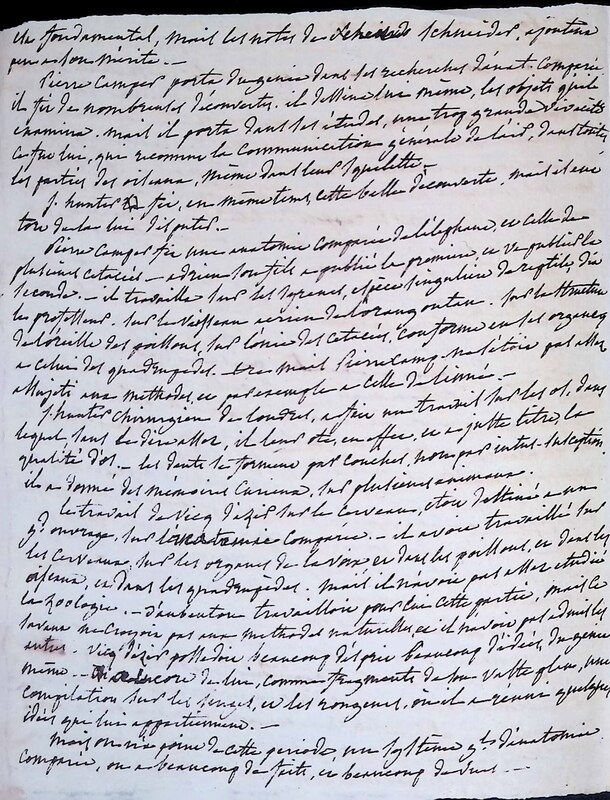 est fondamental, mais les notes de Schneider, ajoutent
peu a son mérite. —
Pierre Camper porta du genie dans ses recherches d'anat. Comparée
il fit de nombreuses découvertes. il dessina lui même, les objets qu'il
examina. mais il porta dans ses études, une trop grande vivacité
ce fut lui, qui reconnut la Communication générale de l'air, dans toutes
les parties des oiseaux, même dans leur squelette. —
J. hunter fit, en même tems, cette belle découverte. mais il eut
tort de la lui disputer. —
Pierre Camper fit une anatomie Comparée de l'éléphant, et celle de
plusieurs cétacés — adrien son fils a publié la premiere, et va publier la
seconde. — il travailla sur les espece singuliere de reptile, dit
le professeur. sur le vaisseau aerien de l'orangoutan. sur la structure
de l'oreille des poissons, sur l'ouie des cétacés, conforme en ses organes
a celui des quadrupèdes. mais Pierre Camp. ne s'étoit pas assez
assujeti aux methodes, et par exemple a celle de linnée. —
J. hunter chirurgien de londres, a fait un travail sur les os, dans
lequel, sans le dire assez, il leur ote, en effet, et a juste titre, la
qualité d'os. — les dents se forment par couches, non par intus-susception
il a donné des mémoires curieux, sur plusieurs animaux.
le travail de Vicq dazir sur le cerveau, etoit destiné a un
gd ouvrage, sur l'anatomie comparée. — il avoit travaillé sur
les cerveaux, sur les organes de la voix et dans les poissons, et dans les
oiseaux, et dans les quadrupèdes. mais il n'avoit pas assez etudié
la zoologie. — d'aubenton travailloit pour lui cette partie, mais ce
savant ne croyoit pas aux methodes naturelles, et il n'avoit pas admis les
autres. Vicq dazir possedoit beaucoup d'esprit beaucoup d'idées, du genie
même. — encore de lui, comme fragments de son vaste plan, une
compilation sur les singes, et les rongeurs, où il a réuni quelques
idées qui lui appartiennent. —
mais on n'a point de cette periode, un système gal. d'anatomie
comparée, on a beaucoup de faits, et beaucoup de vues — —